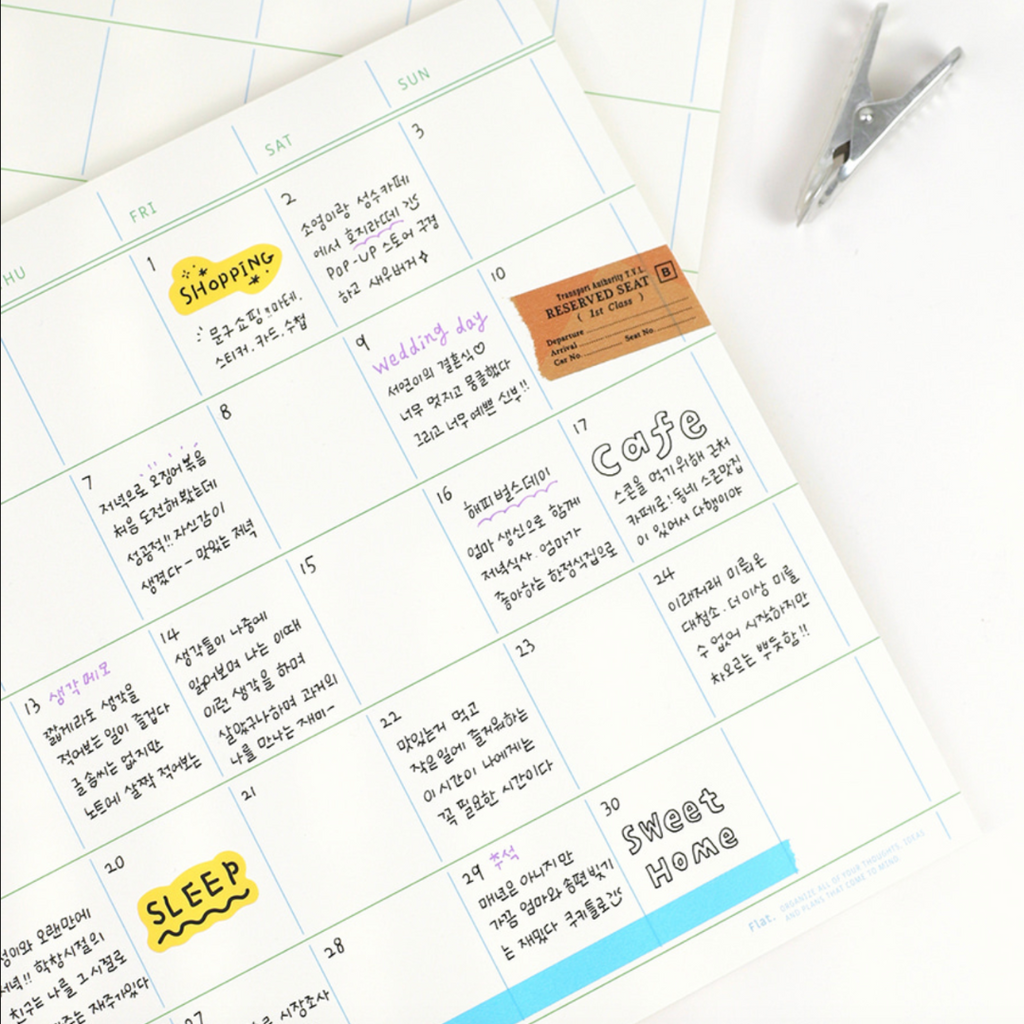 HU
FRI
SAT
SUN
1
SHOPPING
문구쇼핑=마테,
스티커, 카드, 수첩
2
소영이랑 성수카페
에서 호지라떼 간5
POP-UP 스토어 구경
하고 새우버거
3
7
저녁으로 오징어볶음
처음 도전해봤는데
성공적!! 자신감이
생겼다 ~ 맛있는 저녁
8
9
wedding day
서연이의 결혼식♡
너무 멋지고 뭉클했다
그리고 너무 예쁜 신부!!
10
Transport Authority T.V.L.
RESERVED SEAT
( 1st Class )
B
Departure
Arrival
Car No. Seat No.
13 생각메모
짧게라도 생각을
적어보는 일이 즐겁다
글솜씨는 없지만
노트에 살짝 적어보는
14
생각들이 나중에
읽어보며 나는 이때
이런 생각을 하며
살았구나하며 과거의
나를 만나는 재미~
15
16
해피벌스데이
엄마 생신으로 함께
저녁식사. 엄마가
좋아하는 한정식집으로
17
Cafe
스콘을 먹기위해 근처
카페로! 동네 스콘맛집
이 있어서 다행이야
20
SLEEP
21
22
맛있는거 먹고
작은일에 즐거워하는
이 시간이 나에게는
꼭 필요한 시간이다
23
24
이래저래 미뤄온
대청소. 더이상 미룰
수 없어 시작하지만
차오르는 뿌듯함!!
이와 오랜만에
저녁!! 학창시절의
친구는 나를 그 시절로
재주가있다
27
시장조사
28
29 추석
매년은 아니지만
가끔 엄마와 송편빚기
는 재밌다 쿠키틀로
30
Sweet
Home
Flat.
ORGANIZE ALL OF YOUR THOUGHTS, IDEAS
AND PLANS THAT COME TO MIND.